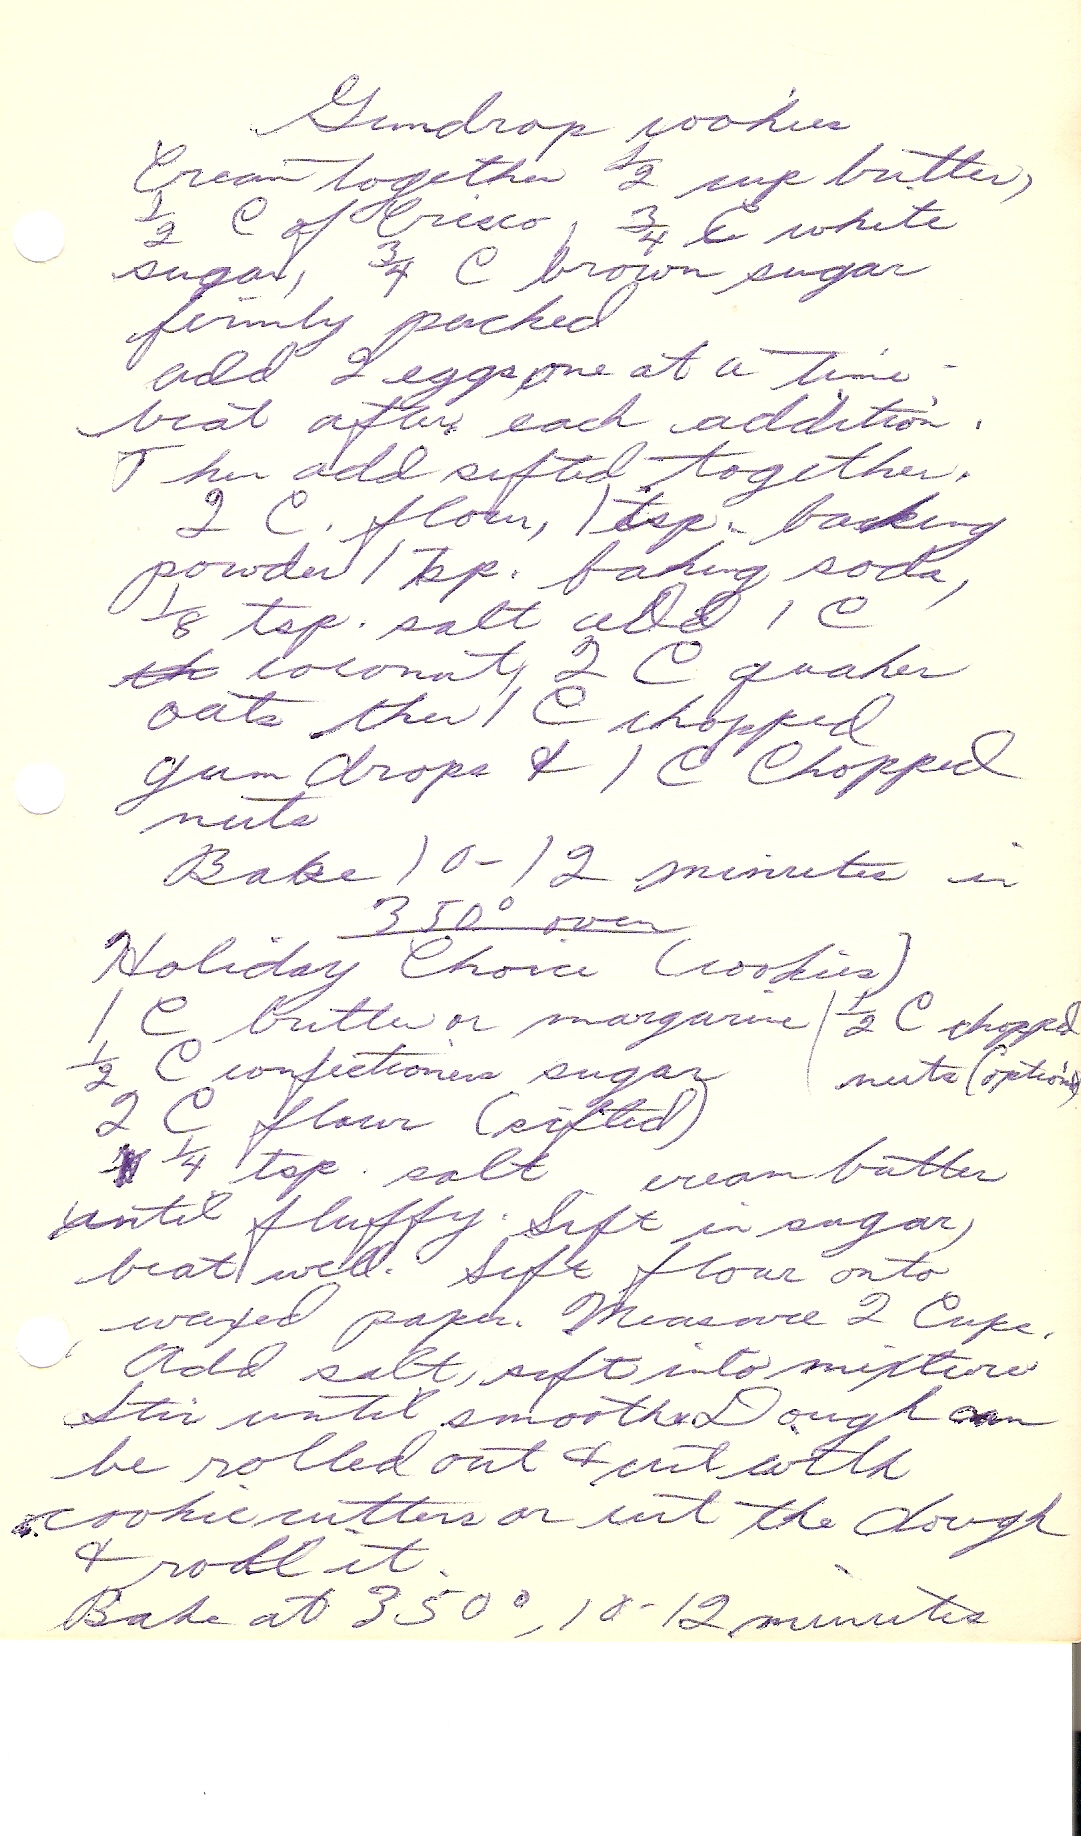 Gumdrop cookies
Cream together 1/2 cup butter,
1/2 C of Crisco, 3/4 C white
sugar, 3/4 C brown sugar
firmly packed
add 2 eggs, one at a time -
beat after each addition.
Then add sifted together.
2 C. flour, 1 tsp. backing
powder 1 Tsp. baking soda,
1/8 tsp. salt add 1 C
coconut, 2 C quaker
oats then 1 C chopped
gum drops & 1 C Chopped
nuts
Bake 10-12 minutes in
350° oven
Holiday Choice (cookies)
1 C butter or margarine
1/2 C confectioners sugar
2 C flour (sifted)
1/2 C chopped
nuts (optional)
1/4 tsp. salt cream butter
until fluffy. Sift in sugar,
beat well. Sift flour onto
waxed paper. Measure 2 Cups.
Add salt, sift into mixture
Stir until smooth. Dough can
be rolled out & cut with
cookie cutters or cut the dough
& roll it.
Bake at 350°, 10-12 minutes